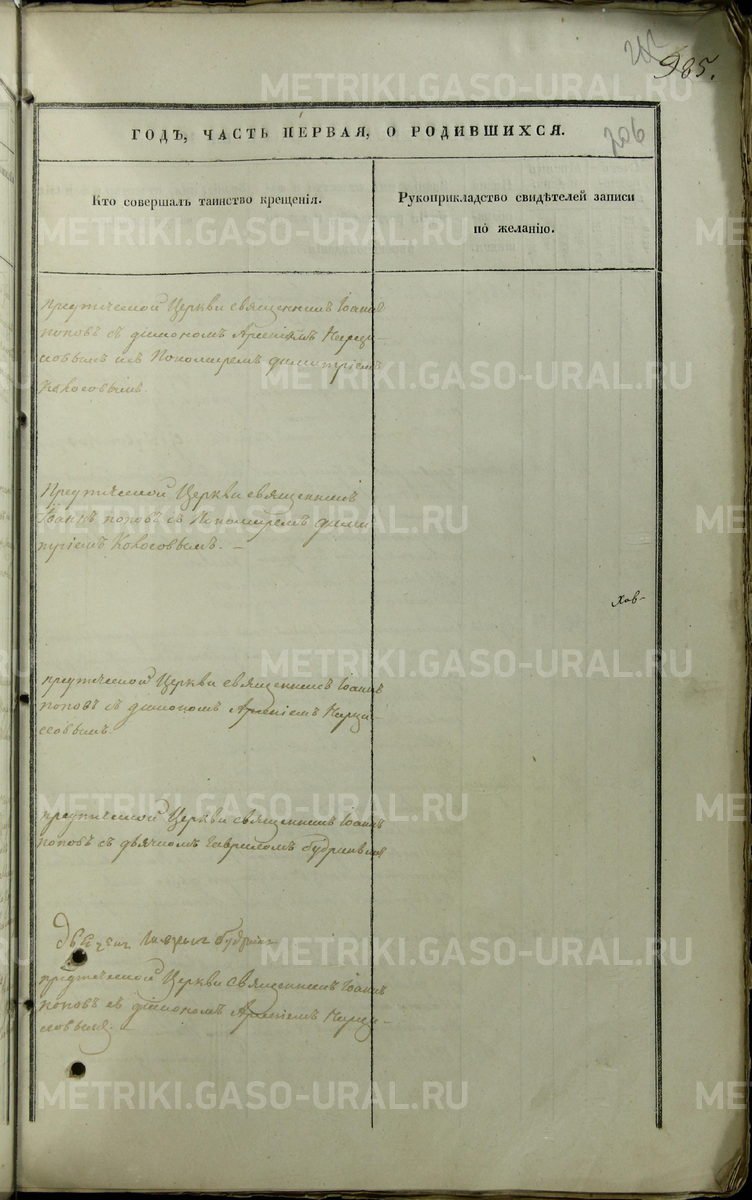 985.
206
ГОДЪ, ЧАСТЬ ПЕРВАЯ, О РОДИВШИХСЯ.
Кто совершалъ таинство крещенія.
Рукоприкладство свидѣтелей записи
по желанію.
Предтеческой Церкви священникъ Іоаннъ
поповъ съ діакономъ Арсеніемъ Нарци-
совымъ и съ Пономаремъ Димитріемъ
Колосовымъ.
Предтеческой Церкви священникъ
Іоаннъ поповъ съ Пономаремъ Дими
тріемъ Колосовымъ. –
Предтеческой Церкви священникъ Іоаннъ
поповъ съ діакономъ Арсеніемъ Нарци-
совымъ.
Предтеческой Церкви священникъ Іоаннъ
поповъ съ дьячкомъ Гавриломъ
Предтеческой Церкви священникъ Іоаннъ
поповъ съ діакономъ Арсеніемъ Нарци-
совымъ.
METRIKI.GASO-URAL.RU